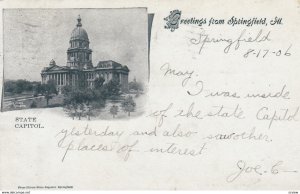 Greetings from Springfield, Ill.
Springfield
8-17-06
May,
I was inside
of the state Capitol
yesterday and also saw other
places of interest
Joe - 6 -
STATE
CAPITOL.